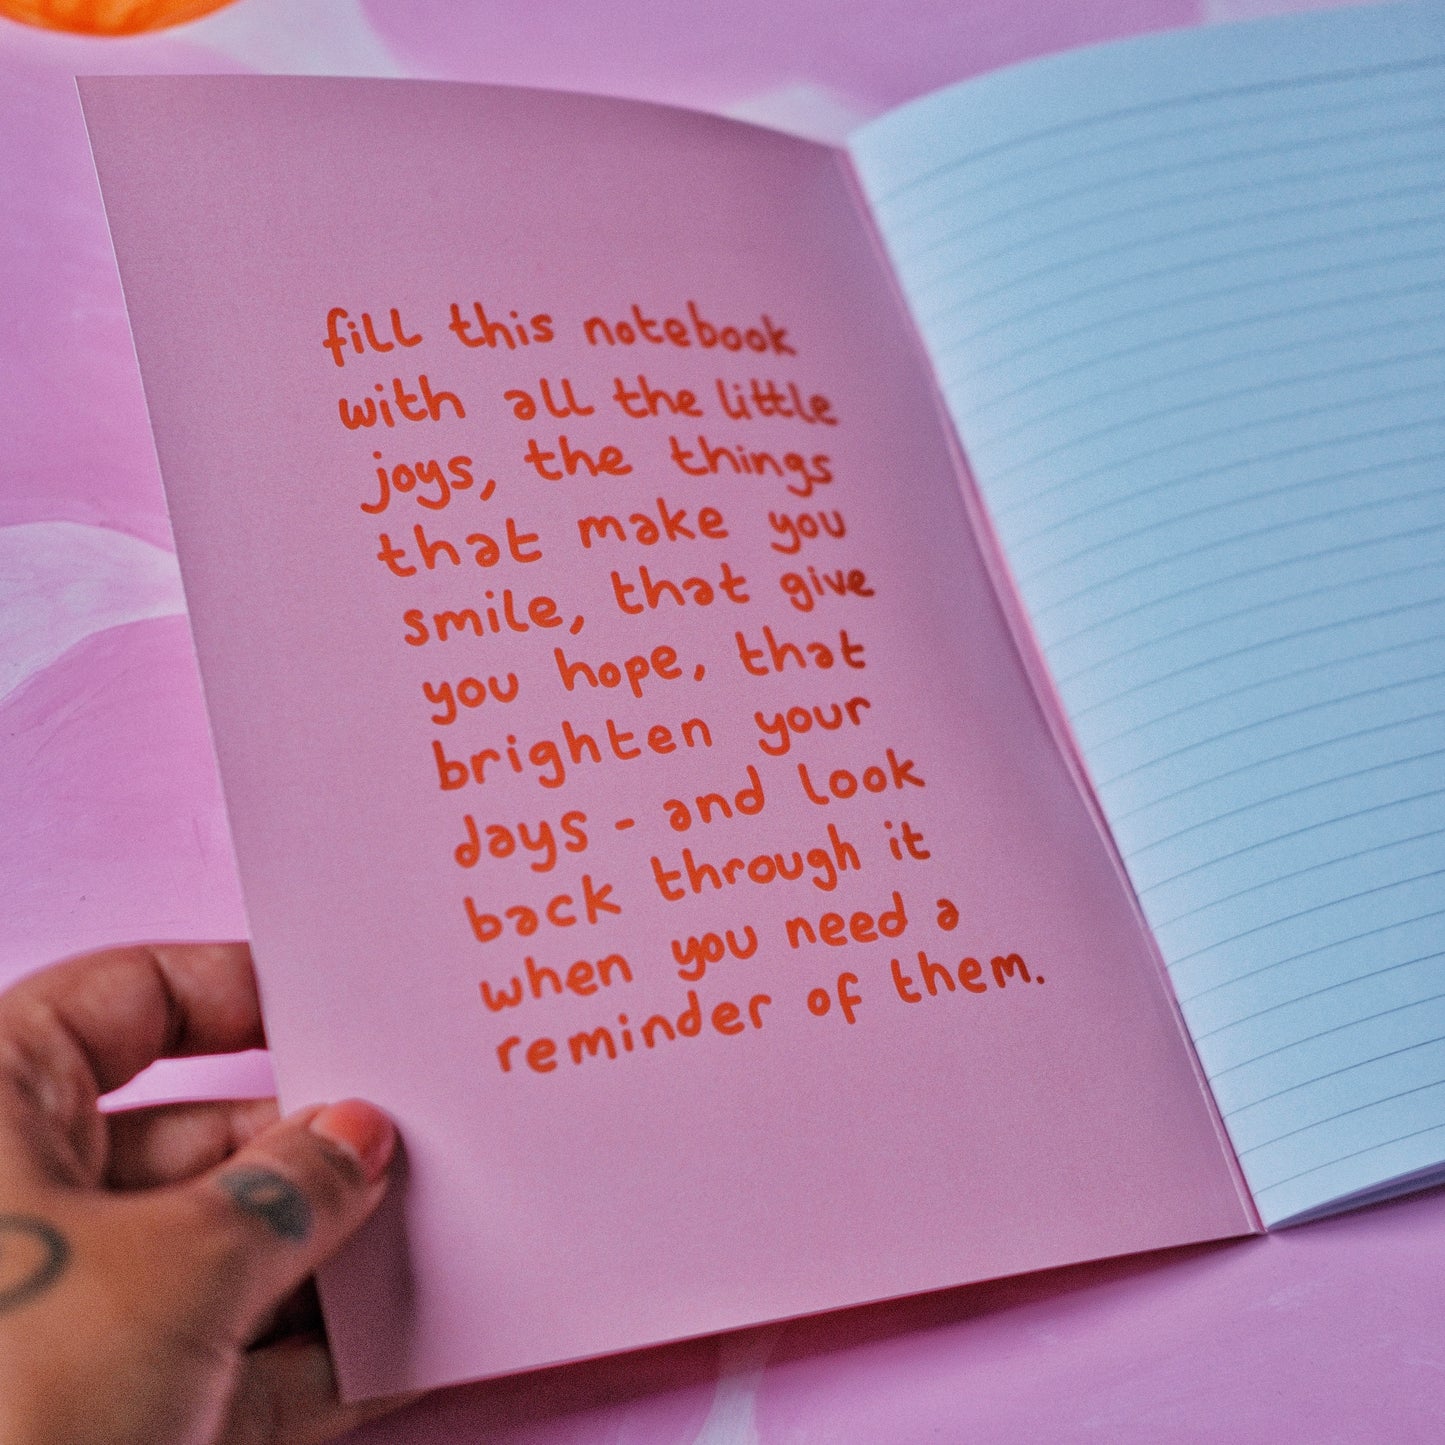 fill this notebook
with all the little
joys, the things
that make you
smile, that give
you hope, that
brighten your
days - and look
back through it
when you need a
reminder of them.